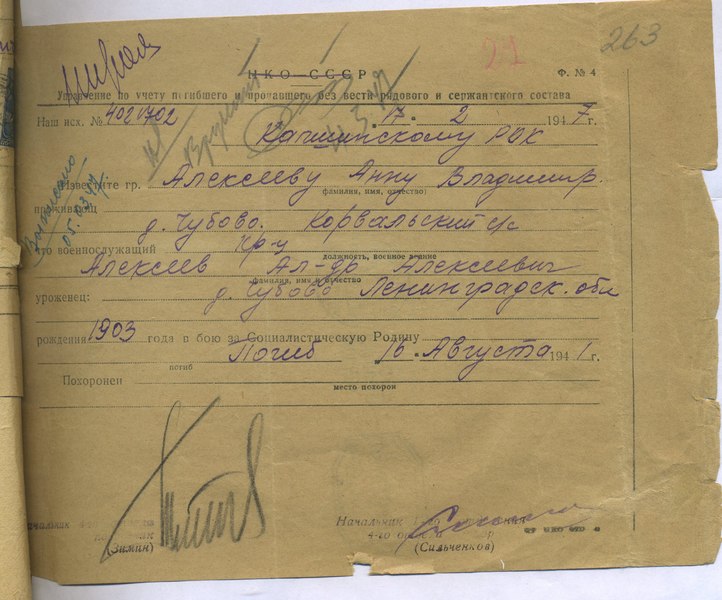 21
263
НКО—СССР
Ф. № 4
Управление по учету погибшего и пропавшего без вести рядового и сержантского состава
Наш исх. № 4021702 17. 2 1947 г.
Капшинскому РВК
Вручить
Выписано
05.03.47г.
Известите гр. Алексееву Анну Владимир.
фамилия, имя, отчество)
д. Чубово. Корвальский с/с
что военнослужащий кр-ц
должность, военное звание
Алексеев Ал-др Алексеевич
фамилия, имя и отчество
уроженец: д. Чубово Ленинградск. обл
рождения 1903 года в бою за Социалистическую Родину
Погиб 16. Августа 1941 г.
погиб
Похоронен
место похорон
Начальник
4-го
(Зимин)
(Сильченков)